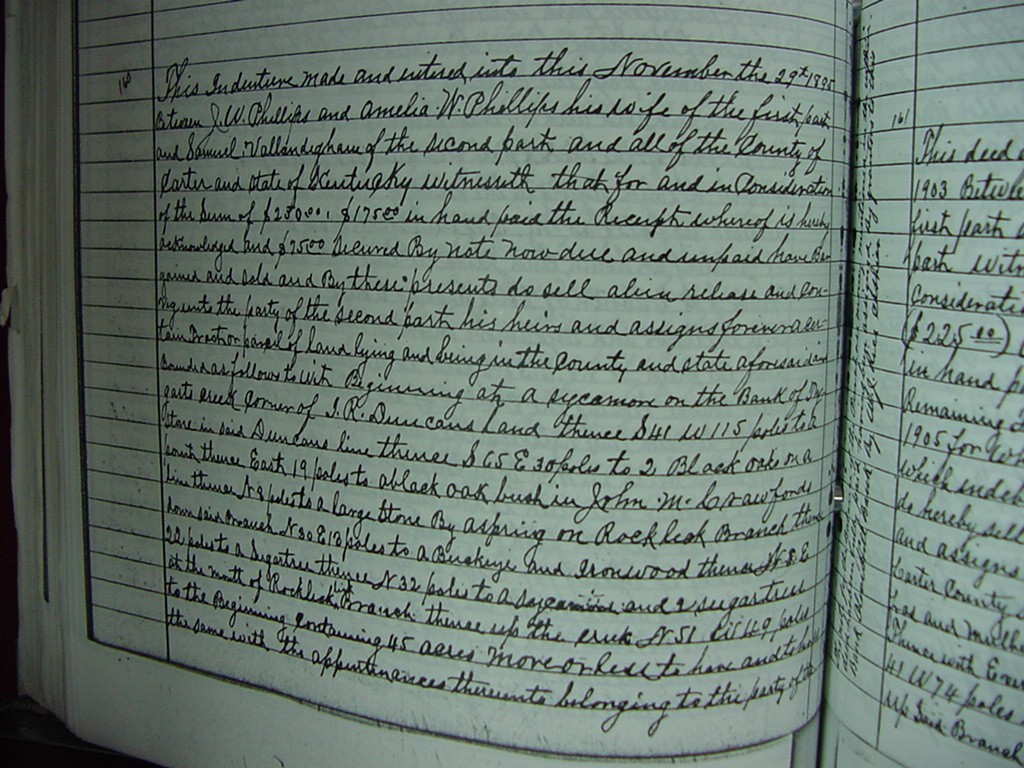 160
This Indenture made and entered into this November the 29th 1895
Between J. W. Phillips and Amelia W. Phillips his wife of the first part
and Samuel Vallandegham of the second part and all of the County of
Carter and state of Kentucky witnesseth that for and in Consideration
of the Sum of $250.00. $175.00 in hand paid the Receipt whereof is hereby
acknowledged and $75.00 Secured By note now due and unpaid have Bar
gained and sold and By these presents do sell alien release and con-
vey unto the party of the second part his heirs and assigns forever a cer-
tain Tract or parcel of land lying and being in the County and state aforesaid and
Bounded as follows to wit Beginning at a sycamore on the Bank of
garts creek corner of J. R. Duncans Land thence S 41 W 115 poles to a
Stone in said Duncans line thence S 65 E 30 poles to 2 Black oaks on a
point thence East 19 poles to a black oak bush in John M. Crawfords
line thence N 8 poles to a large stone By a spring on Rocklick Branch thence
down said Branch N 30 E 13 poles to a Buckeye and Ironwood thence N 8 E
22 poles to a Sugartree thence N 32 poles to a sycamore and 2 sugartrees
at the mouth of Rocklick Branch thence up the creek N 51 W 49 poles
to the Beginning Containing 45 acres more or less to have and to hold
the same with the appurtenances thereunto belonging to the party of the
161
This deed
1903 Betwe
first part
part witn
Consideratio
($225.00)
in hand p
Remaining
1905 for wh
which indeb
do hereby sell
and assigns
Carter County
has and
Thence with
41 W 74 poles
up said Branch